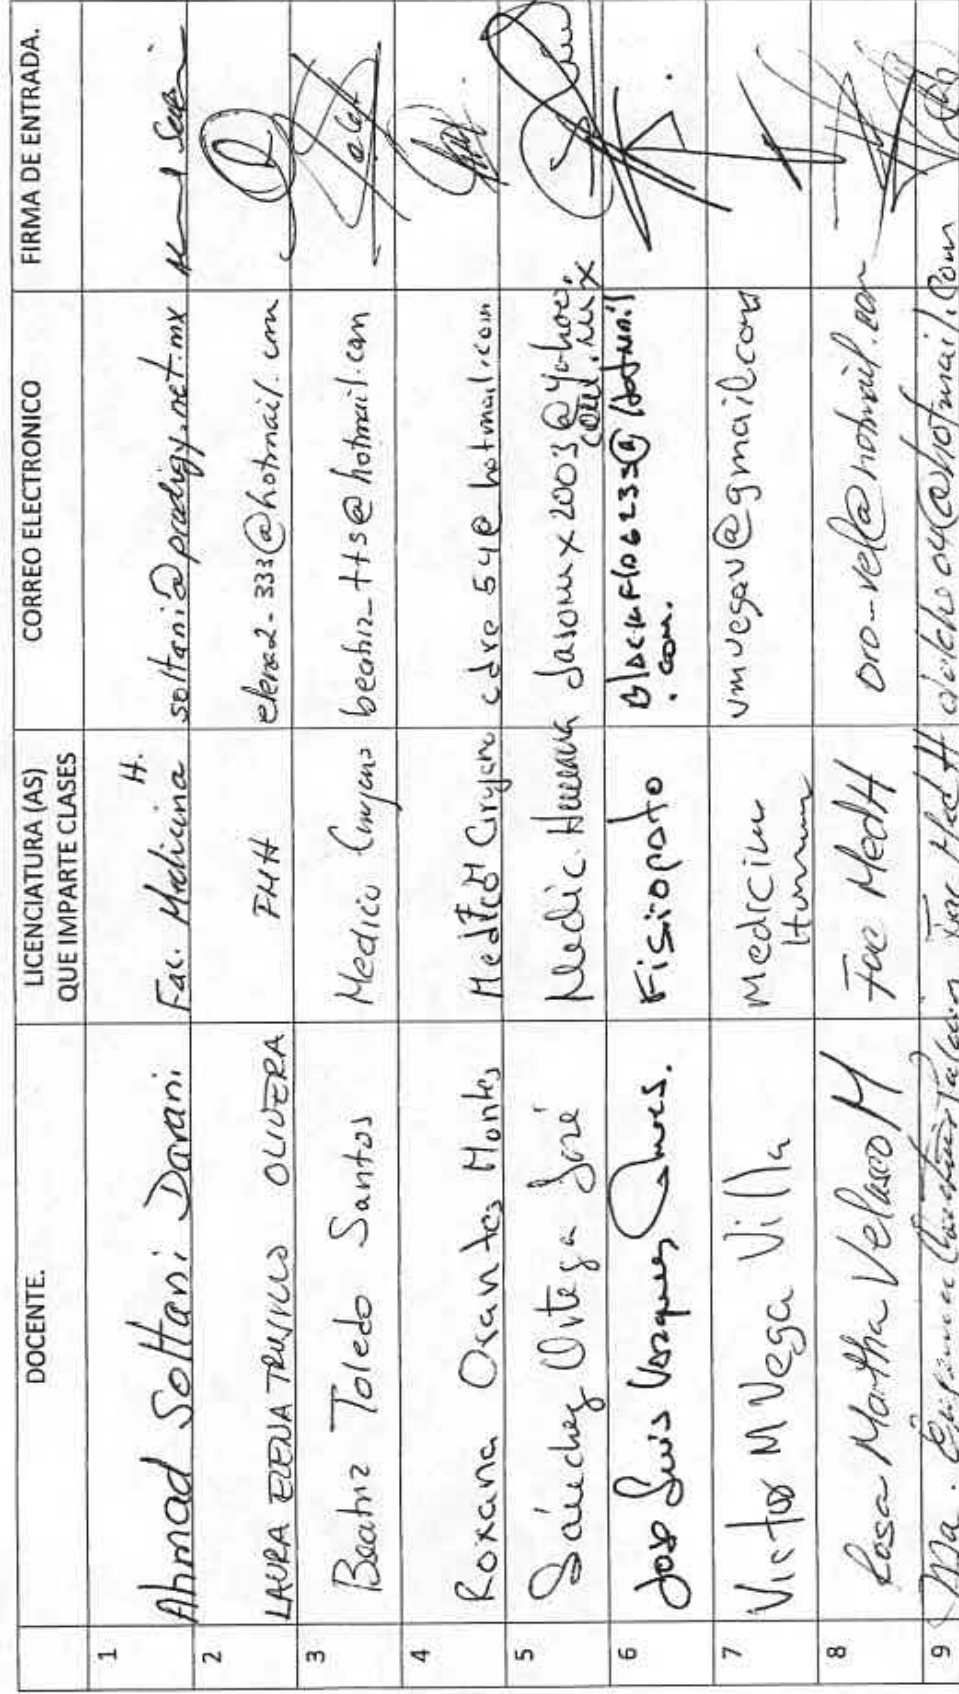 DOCENTE.
LICENCIATURA (AS)
QUE IMPARTE CLASES
CORREO ELECTRONICO
FIRMA DE ENTRADA.
1
Ahmad Soltani Darani
Fac. Medicina H.
soltania@prodigy.net.mx
2
LAURA ELENA TRUJILLO OLIVERA
FMH
elena2-333@hotmail.com
3
Beatriz Toledo Santos
Medico Cirujano
beatriz_tts@hotmail.com
4
Roxana Ocantes Montes
cdre54@hotmail.com
5
Sánchez Ortega José
Medic. Humana
Jasomx2003@Yahoo.
com.mx
6
José Luis Vázquez
Fisiopato
@Hotmail
.com.
7
Victor M Vega Villa
Medicina
Humana
vmvegav@gmail.com
8
Rosa Martha Velasco M
Fac MedH
oro-vel@hotmail.com
9
Ma.
Fac Med H
@hotmail.com